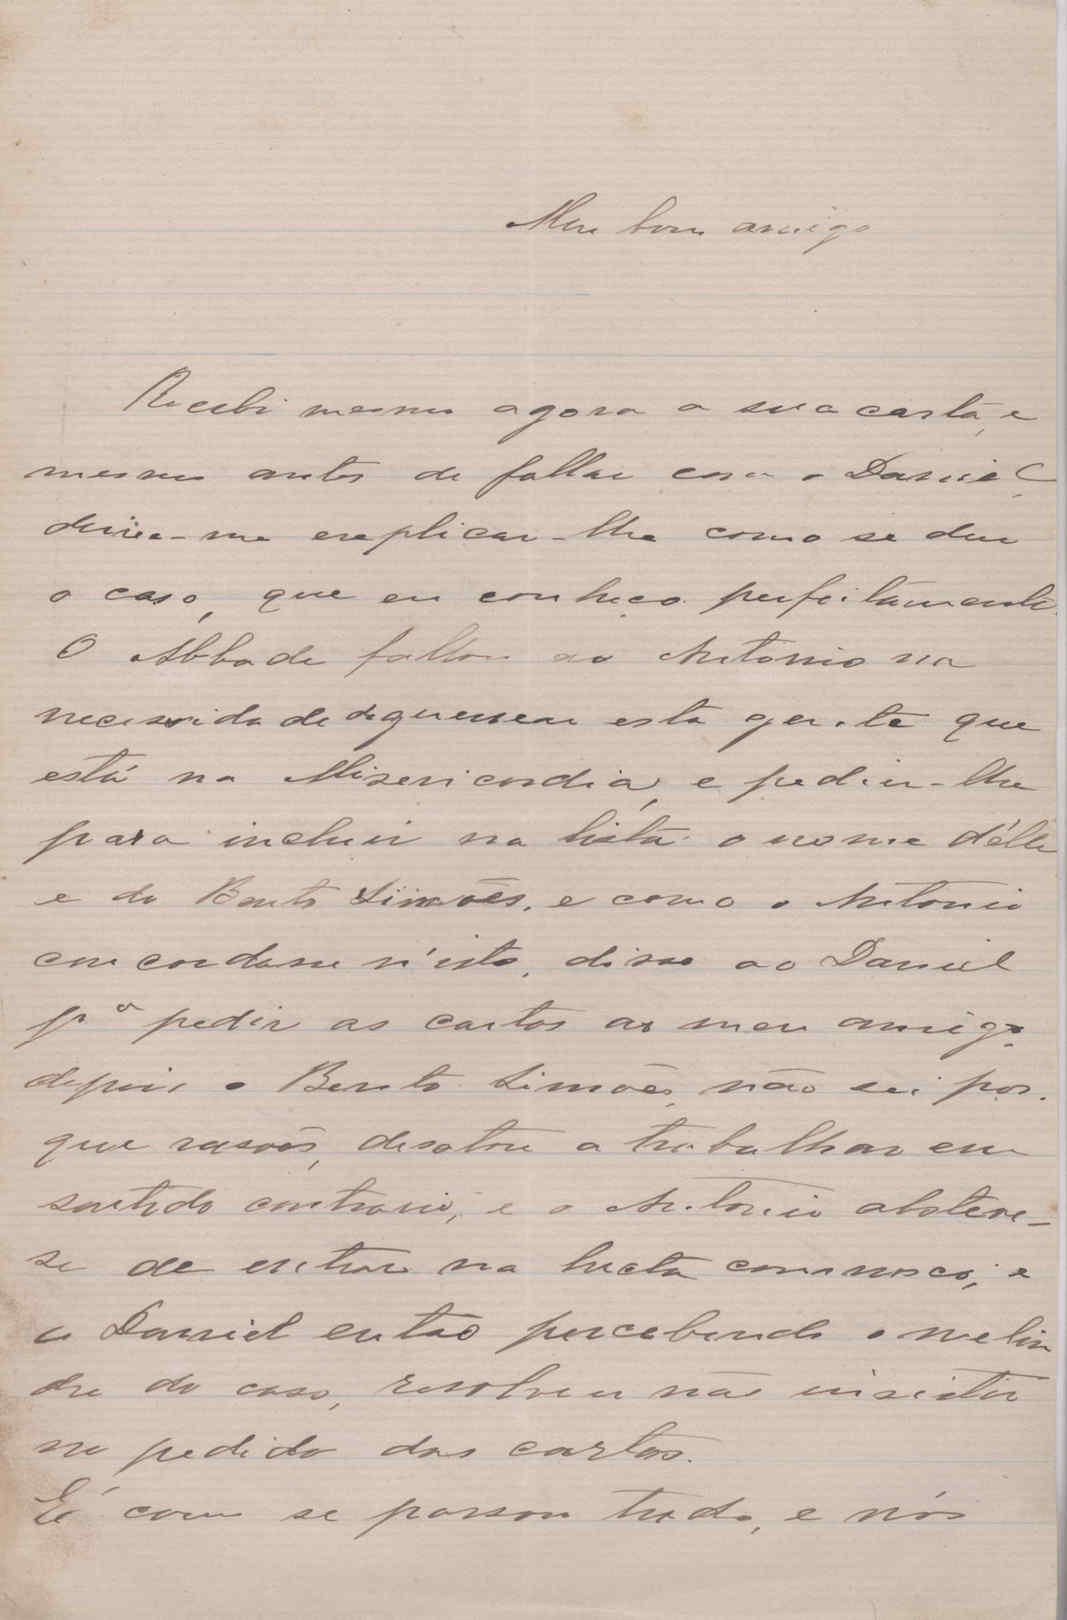 Meu bom amigo
Recebi mesmo agora a sua carta, e
mesmo antes de fallar com o Daniel,
deixe-me explicar-lhe como se deu
o caso, que eu conheço perfeitamente.
O Abbade fallou ao Antonio na
necessidade de guerrear esta gente que
está na Misericordia, e pediu-lhe
para incluir na lista o nome d'elle
e do Bento Simões, e como o Antonio
concordasse n'isto, disse ao Daniel
pª pedir as cartas ao meu amigo.
depois o Bento Simões, não sei por-
que rasões, desatou a trabalhar em
sentido contrario, e o Antonio absteve-
se de entrar na lucta comnosco, e
o Daniel então percebendo o melin
dre do caso, resolveu não insistir
no pedido das cartas.
É como se passou tudo, e nós